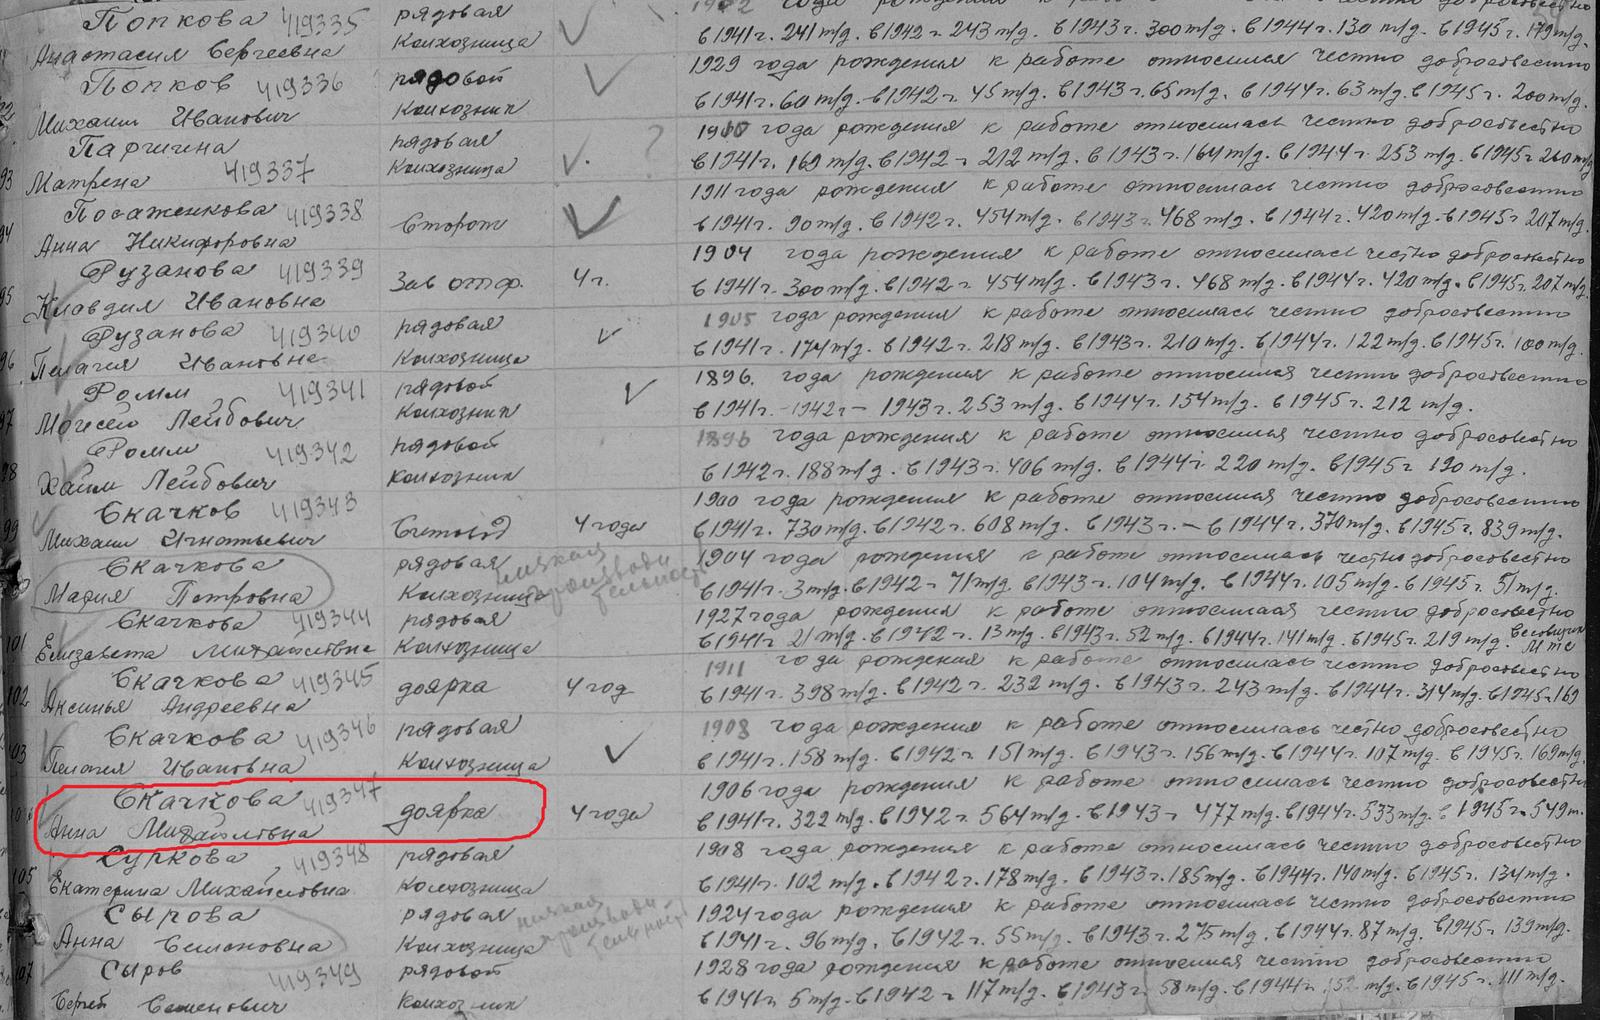 Попкова 419335 рядовая
Анастасия Сергеевна Колхозница в 1941 г. 241 т/д. в 1942 г. 243 т/д. в 1943 г. 300 т/д. в 1944 г. 130 т/д. в 1945 г. 179 т/д.
Попков 419336 рядовой 1929 года рождения к работе относился честно добросовестно
Михаил Иванович Колхозник в 1941 г. 60 т/д. в 1942 г. 45 т/д. в 1943 г. 65 т/д. в 1944 г. 63 т/д. в 1945 г. 200 т/д.
рядовая ? года рождения к работе относилась честно добросовестно
Матрена 419337 Колхозница в 1941 г. 169 т/д. в 1942 г. 212 т/д. в 1943 г. 164 т/д. в 1944 г. 253 т/д. в 1945 г. 260 т/д
Посаженкова 419338 1911 года рождения к работе относилась честно добросовестно
Анна Никифоровна Сторож в 1941 г. 90 т/д. в 1942 г. 454 т/д. в 1943 г. 468 т/д. в 1944 г. 420 т/д. в 1945 г. 207 т/д.
Рузанова 419339 1904 года рождения к работе относилась честно добросовестно
Клавдия Ивановна Зав отф. 4 г. в 1941 г. 300 т/д. в 1942 г. 454 т/д. в 1943 г. 468 т/д. в 1944 г. 420 т/д. в 1945 г. 207 т/д.
Рузанова 419340 рядовая 1905 года рождения к работе относилась честно добросовестно
Пелагея Ивановна Колхозница в 1941 г. 174 т/д. в 1942 г. 218 т/д. в 1943 г. 210 т/д. в 1944 г. 122 т/д. в 1945 г. 100 т/д.
Ромм 419341 рядовой 1896. года рождения к работе относился честно добросовестно
Моисей Лейбович Колхозник в 1941 г. – 1942 г – 1943 г. 253 т/д. в 1944 г. 154 т/д. в 1945 г. 212 т/д.
Ромм 419342 рядовой 1896 года рождения к работе относился честно добросовестно
98 Хаим Лейбович Колхозник в 1942 г. 188 т/д. в 1943 г. 406 т/д. в 1944 г. 220 т/д. в 1945 г 190 т/д.
Скачков 419343 1900 года рождения к работе относился честно добросовестно
99 Михаил Игнатьевич Счетовод 4 года в 1941 г. 730 т/д. в 1942 г. 608 т/д. в 1943 г. – в 1944 г. 370 т/д. в 1945 г. 839 т/д.
Скачкова рядовая низкая производительность 1904 года рождения к работе относилась честно добросовестно
Мария Петровна Колхозница в 1941 г. 3 т/д. в 1942 г 71 т/д. в 1943 г. 104 т/д. в 1944 г. 105 т/д. в 1945 г. 51 т/д.
Скачкова 419344 рядовая 1927 года рождения к работе относилась честно добросовестно
101 Елизавета Михайловна Колхозница в 1941 г. 21 т/д. в 1942 г. 13 т/д. в 1943 г. 52 т/д. в 1944 г. 141 т/д. в 1945 г. 219 т/д. МТС
Скачкова 419345 1911 года рождения к работе относилась честно добросовестно
102 Аксинья Андреевна доярка 4 год в 1941 г. 398 т/д. в 1942 г. 232 т/д. в 1943 г. 243 т/д. в 1944 г. 314 т/д. в 1945 г. 169
Скачкова 419346 рядовая 1908 года рождения к работе относилась честно добросовестно
103 Пелагея Ивановна Колхозница в 1941 г. 158 т/д. в 1942 г. 151 т/д. в 1943 г. 156 т/д. в 1944 г. 107 т/д. в 1945 г. 169 т/д.
Скачкова 419347 1906 года рождения к работе относилась честно добросовестно
Анна Михайловна доярка 4 года в 1941 г. 322 т/д. в 1942 г. 564 т/д. в 1943 г 477 т/д. в 1944 г. 533 т/д. в 1945 г. 549 т.
Суркова 419348 рядовая 1908 года рождения к работе относилась честно добросовестно
105 Екатерина Михайловна Колхозница в 1941 г. 102 т/д. в 1942 г. 178 т/д. в 1943 г. 185 т/д. в 1944 г. 140 т/д. в 1945 г. 134 т/д.
Сырова рядовая низкая производительность 1924 года рождения к работе относилась честно добросовестно
Анна Семеновна Колхозница в 1941 г. 96 т/д. в 1942 г. 55 т/д. в 1943 г. 275 т/д. в 1944 г. 87 т/д. в 1945 г. 139 т/д.
107 Сыров 419349 рядовой 1928 года рождения к работе относился честно добросовестно
Сергей Семенович Колхозник в 1941 г. 5 т/д. в 1942 г 117 т/д. в 1943 г. 58 т/д. в 1944 г. 152 т/д. в 1945 г. 111 т/д.